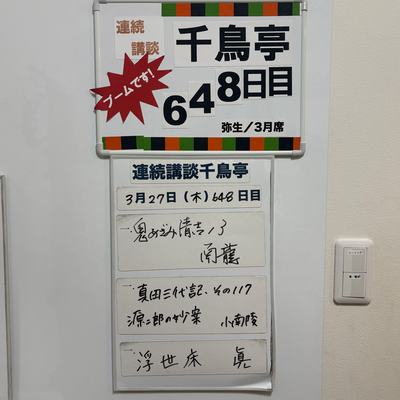 連続
講談
千鳥亭
ブームです!
648日目
弥生/3月席
連続講談千鳥亭
3月27日(木)648日目
一、鬼あざみ清吉ノ3
南龍
一、真田三代記、その117
源二郎の妙案 小南陵
一、浮世床 眞